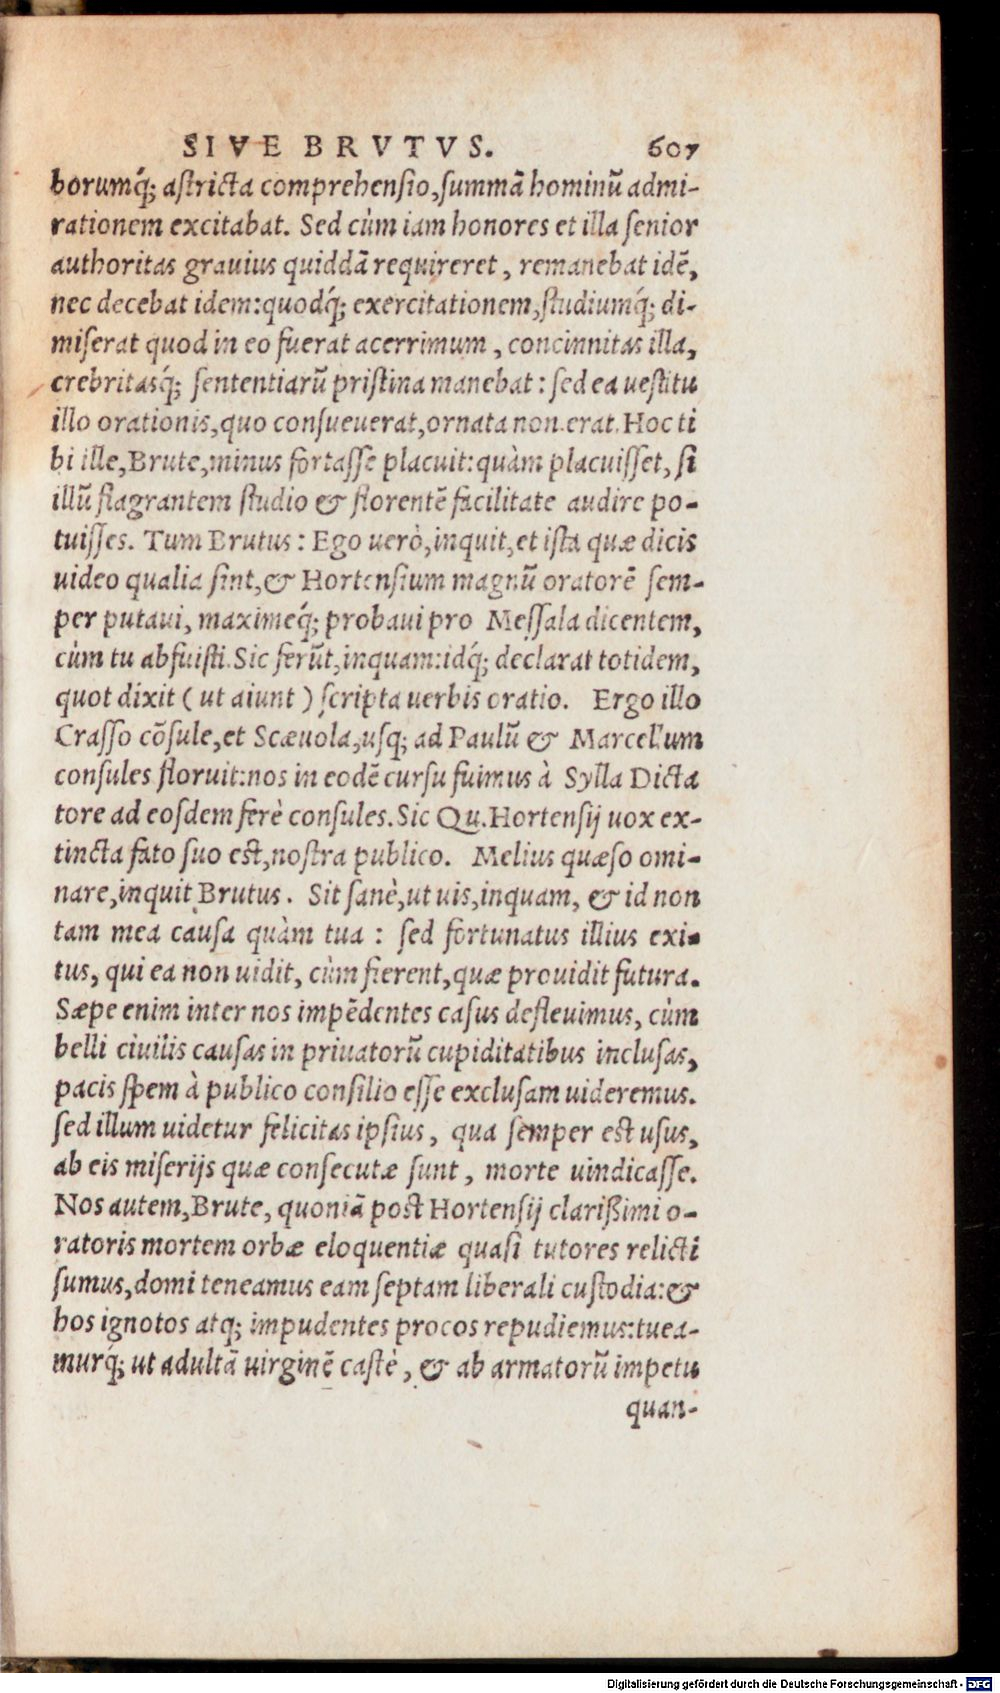 SIVE BRVTVS. 607
borumq́; astricta comprehensio, summā hominū admi-
rationem excitabat. Sed cùm iam honores et illa senior
authoritas grauius quiddā requireret, remanebat idē,
nec decebat idem: quodq́; exercitationem, studiumq́; di-
miserat quod in eo fuerat acerrimum, concinnitas illa,
crebritasq́; sententiarū pristina manebat: sed ea uestitu
illo orationis, quo consueuerat, ornata non erat. Hoc ti
bi ille, Brute, minus fortasse placuit: quàm placuisset, si
illū flagrantem studio & florentē facilitate audire po-
tuisses. Tum Brutus: Ego uerò, inquit, et ista quæ dicis
uideo qualia sint, & Hortensium magnū oratorē sem-
per putaui, maximeq́; probaui pro Messala dicentem,
cùm tu abfuisti. Sic ferūt, inquam: idq́; declarat totidem,
quot dixit (ut aiunt) scripta uerbis oratio. Ergo illo
Crasso cōsule, et Scæuola, usq; ad Paulū & Marcellum
consules floruit: nos in eodē cursu fuimus à Sylla Dicta
tore ad eosdem ferè consules. Sic Qu. Hortensij uox ex-
tincta fato suo est, nostra publico. Melius quæso omi-
nare, inquit Brutus. Sit sanè, ut uis, inquam, & id non
tam mea causa quàm tua: sed fortunatus illius exi-
tus, qui ea non uidit, cùm fierent, quæ prouidit futura.
Sæpe enim inter nos impēdentes casus defleuimus, cùm
belli ciuilis causas in priuatorū cupiditatibus inclusas,
pacis spem à publico consilio esse exclusam uideremus.
sed illum uidetur felicitas ipsius, qua semper est usus,
ab eis miserijs quæ consecutæ sunt, morte uindicasse.
Nos autem, Brute, quoniā post Hortensij clarißimi o-
ratoris mortem orbæ eloquentiæ quasi tutores relicti
sumus, domi teneamus eam septam liberali custodia: &
hos ignotos atq; impudentes procos repudiemus: tuea-
murq́; ut adultā uirginē castè, & ab armatorū impetu
quan-
Digitalisierung gefördert durch die Deutsche Forschungsgemeinschaft - DFG